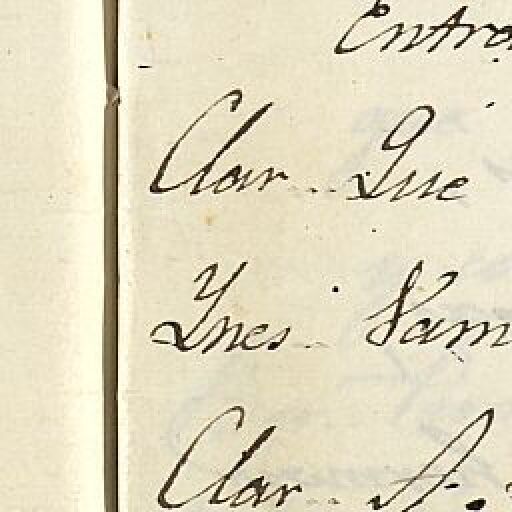 Entra
Clar. Que
Ynes. Vam
Clar. Si.